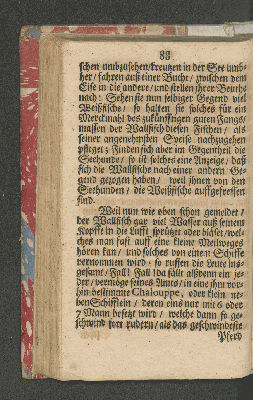 88
schen umbzusehen/kreutzen in der See umb-
her/ fahren auß einer Bucht/ zwischen dem
Eise in die andere/ und stellen ihrer Beuthe
nach: Sehen sie nun selbiger Gegend viel
Weißfische/ so halten sie solches für ein
Merckmahl des zukünfftigen guten Fangs/
massen der Wallfisch diesen Fischen/ als
seiner angenehmsten Speise nachzugehen
pfleget; Finden sich aber im Gegentheil die
Seehunde/ so ist solches eine Anzeige/ daß
sich die Wallfische nach einer andern Ge-
gend gezogen haben/ weil ihnen von den
Seehunden/ die Weißfische auffgefressen
sind.
Weil nun wie oben schon gemeldet/
der Wallfisch gar viel Wasser auß seinem
Kopffe in die Lufft sprützet oder bläset/ wel-
ches man fast auff eine kleine Meilweges
hören kan/ und solches von einem Schiffe
vernommen wird/ so ruffen die Leute ins-
gesamt/ Fall! Fall! da fält alsdenn ein je-
der/ vermöge seines Amts/ in eine ihm vor-
hin bestimmte Chalouppe, oder klein ne-
ben Schifflein/ deren eins nur mit 6 oder
7 Mann besetzt wird/ welche dann so ge-
schwind fort rudern/ als das geschwindeste
Pferd